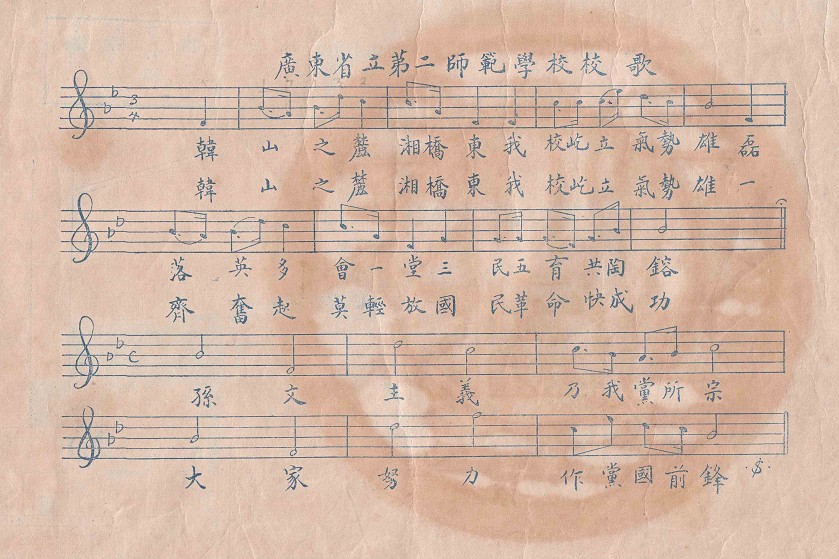 廣東省立第二師範學校校歌
3/4
韓山之麓湘橋東我校屹立氣勢雄磊
韓山之麓湘橋東我校屹立氣勢雄一
落英多會一堂三民五育共陶鎔
齊奮起莫輕放國民革命快成功
C
孫文主義乃我黨所宗
大家努力作黨國前鋒